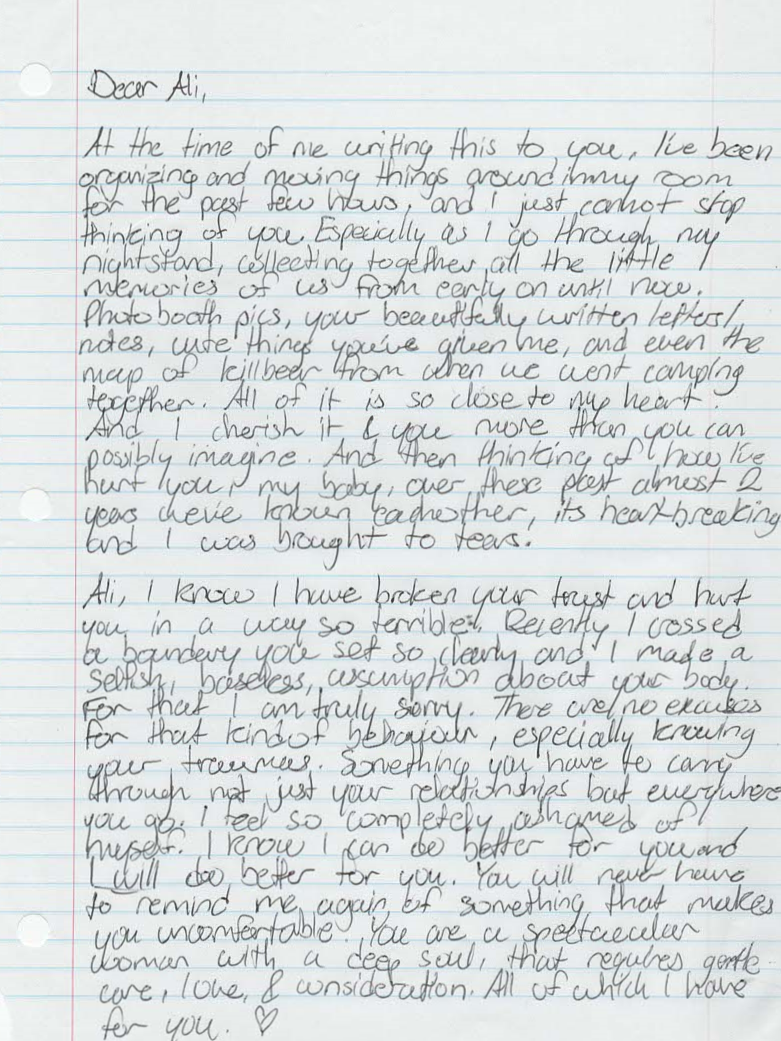 Dear Ali,
At the time of me writing this to you, I've been
organizing and moving things around in my room
for the past few hours, and I just cannot stop
thinking of you. Especially as I go through my
nightstand, collecting together all the little
memories of us from early on until now.
Photobooth pics, your beautifully written letters/
notes, cute things you've given me, and even the
map of killbear from when we went camping
together. All of it is so close to my heart.
And I cherish it & you more than you can
possibly imagine. And then thinking of how I've
hurt you, my baby, over these past almost 2
years weve known eachother, its heartbreaking
and I was brought to tears.
Ali, I know I have broken your trust and hurt
you in a way so terrible. Recently I crossed
a boundary you set so clearly and I made a
selfish, baseless, assumption about your body.
For that I am truly sorry. There are no excuses
for that kind of behaviour, especially knowing
your traumas. Something you have to carry
through not just your relationships but everywhere
you go. I feel so completely ashamed of
myself. I know I can do better for you and
I will do better for you. You will never have
to remind me again of something that makes
you uncomfortable. You are a spectacular
woman with a deep soul, that requires gentle
care, love, & consideration. All of which I have
for you. ♡